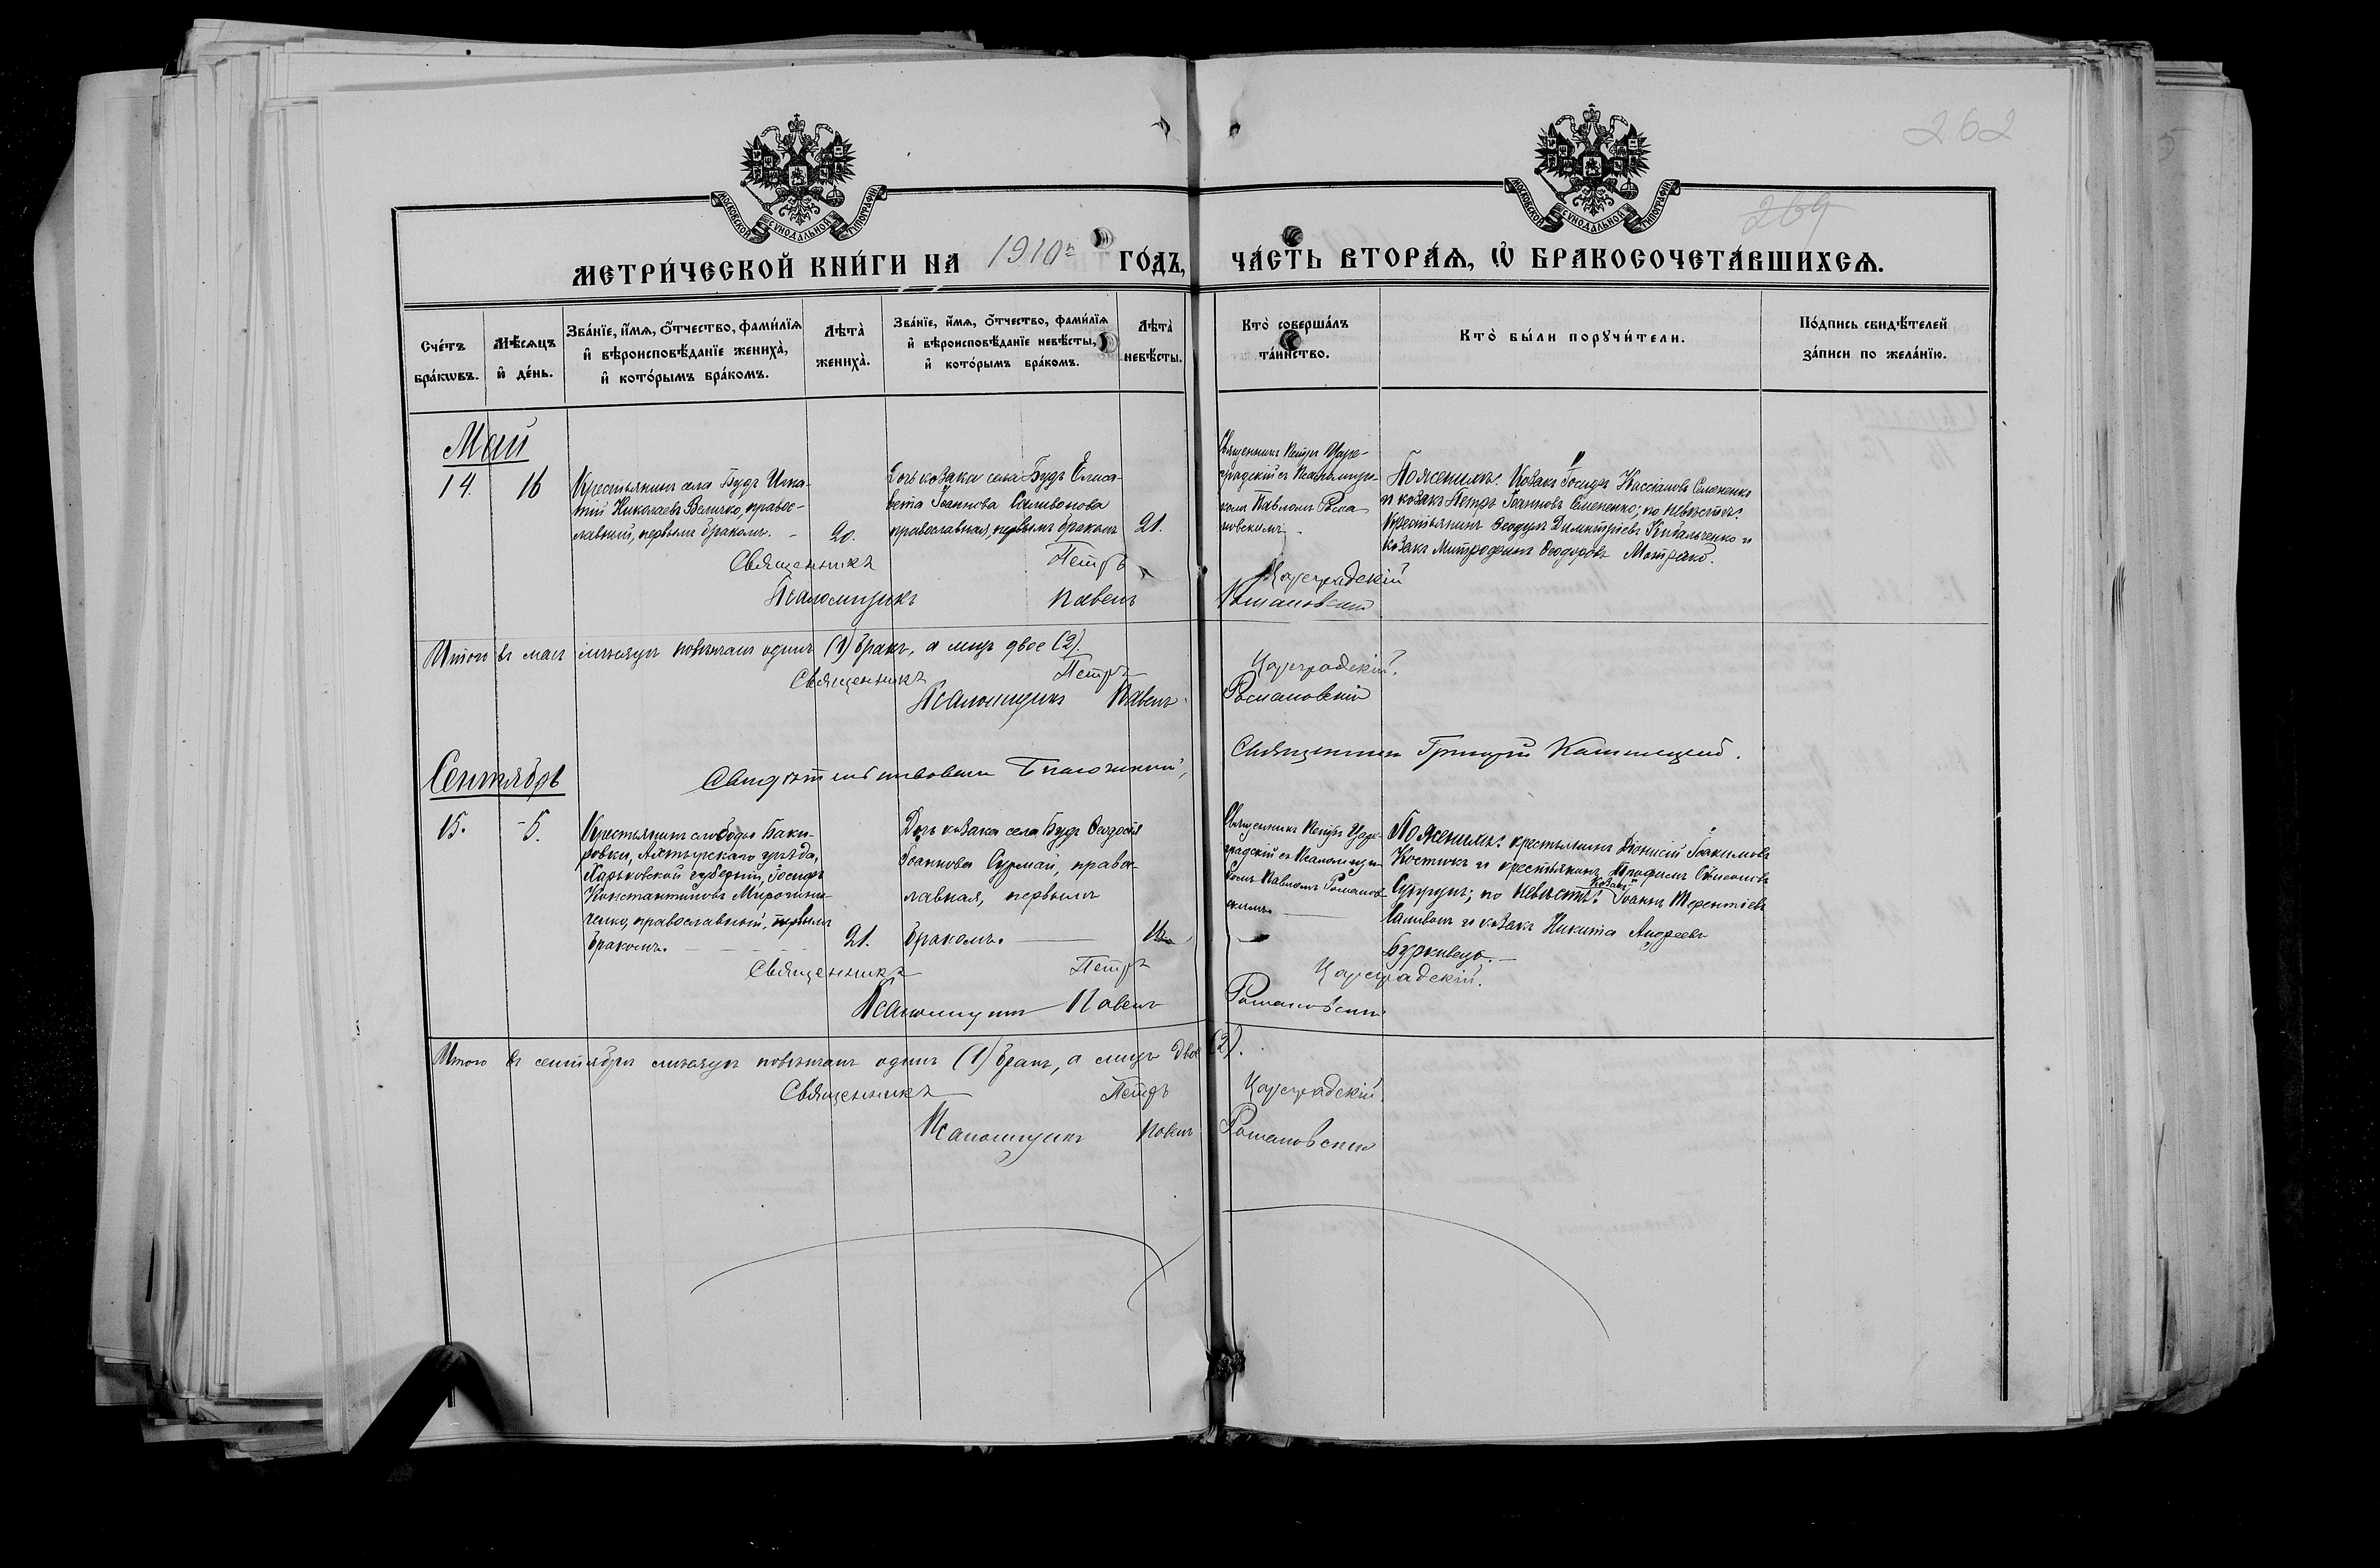 262
269
МОСКОВСКОЙ СУНОДАЛЬНОЙ ТИПОГРАФІИ
МОСКОВСКОЙ СУНОДАЛЬНОЙ ТИПОГРАФІИ
МЕТРИ́ЧЕСКОЙ КНИ́ГИ НА 1910й ГО́ДЪ, ЧА́СТЬ ВТОРА́Ѧ, Ѡ БРАКОСОЧЕТА́ВШИХСѦ.
Сче́тъ бра́кѡвъ.
Мѣ́сѧцъ и҆ де́нь.
Зва́нїе, и҆́мѧ, ѻ҆́тчество, фами́лїѧ и҆ вѣроисповѣ́данїе жениха̀, и҆ кото́рымъ бра́комъ.
Лѣ́та̀ жениха̀.
Зва́нїе, и҆́мѧ, ѻ҆́тчество, фами́лїѧ и҆ вѣроисповѣ́данїе невѣ́сты, и҆ кото́рымъ бра́комъ.
Лѣ́та̀ невѣ́сты.
Кто̀ соверша́лъ та́инство.
Кто̀ бы́ли порꙋчи́тели.
По́дпись свидѣ́телей за́писи по жела́нїю.
Май
14. 16
Крестьянинъ села Будъ Игна-
тій Николаевъ Величко, правос-
лавный, первымъ бракомъ. -
20.
Дочь козака села Будъ Елиса-
вета Іоаннова Саливонова
православная, первымъ бракомъ
21.
Священникъ Петръ Царе-
градскій съ Псаломщи-
комъ Павломъ Рома
новскимъ -
По женихѣ: Козакъ Іосифъ Кассіановъ Семененко
и козакъ Петръ Іоанновъ Семененко; по невѣстѣ:
Крестьянинъ Ѳеодулъ Димитріевъ Кибальченко и
козакъ Митрофанъ Ѳеодоровъ
Священникъ Петръ Цареградскій
Псаломщикъ Павелъ Романовскій
Итого въ маѣ мѣсяцѣ повѣнчанъ одинъ (1) бракъ, а лицъ двое (2).
Священникъ Петръ Цареградскій.
Псаломщикъ Павелъ Романовскій
Сентябрь
Свидѣтельствовалъ Благочинный, Священникъ Григорій
15. - 5.
Крестьянинъ слободы Баки-
ровки, Ахтырскаго уѣзда,
Харьковской губерніи, Іосифъ
Константиновъ Мирошни-
ченко, православный, первымъ
бракомъ.
21.
Дочь козака села Будъ Ѳеодосія
Іоаннова Сурмай, правос-
лавная, первымъ
бракомъ.
Священникъ Петръ Царе-
градскій съ Псаломщи-
комъ Павломъ Романов-
скимъ.
По женихѣ: крестьянинъ Діонисій Іоакимовъ
Костюкъ и крестьянинъ Трофимъ Симеоновъ
Супрунъ; по невѣстѣ: козакъ Іоаннъ Терентіевъ
Саливонъ и козакъ Никита Андреевъ
Бурживецъ. -
Священникъ Петръ Цареградскій.
Псаломщикъ Павелъ Романовскій
Итого въ сентябрѣ мѣсяцѣ повѣнчанъ одинъ (1) бракъ, а лицъ двое (2).
Священникъ Петръ Цареградскій.
Псаломщикъ Павелъ Романовскій